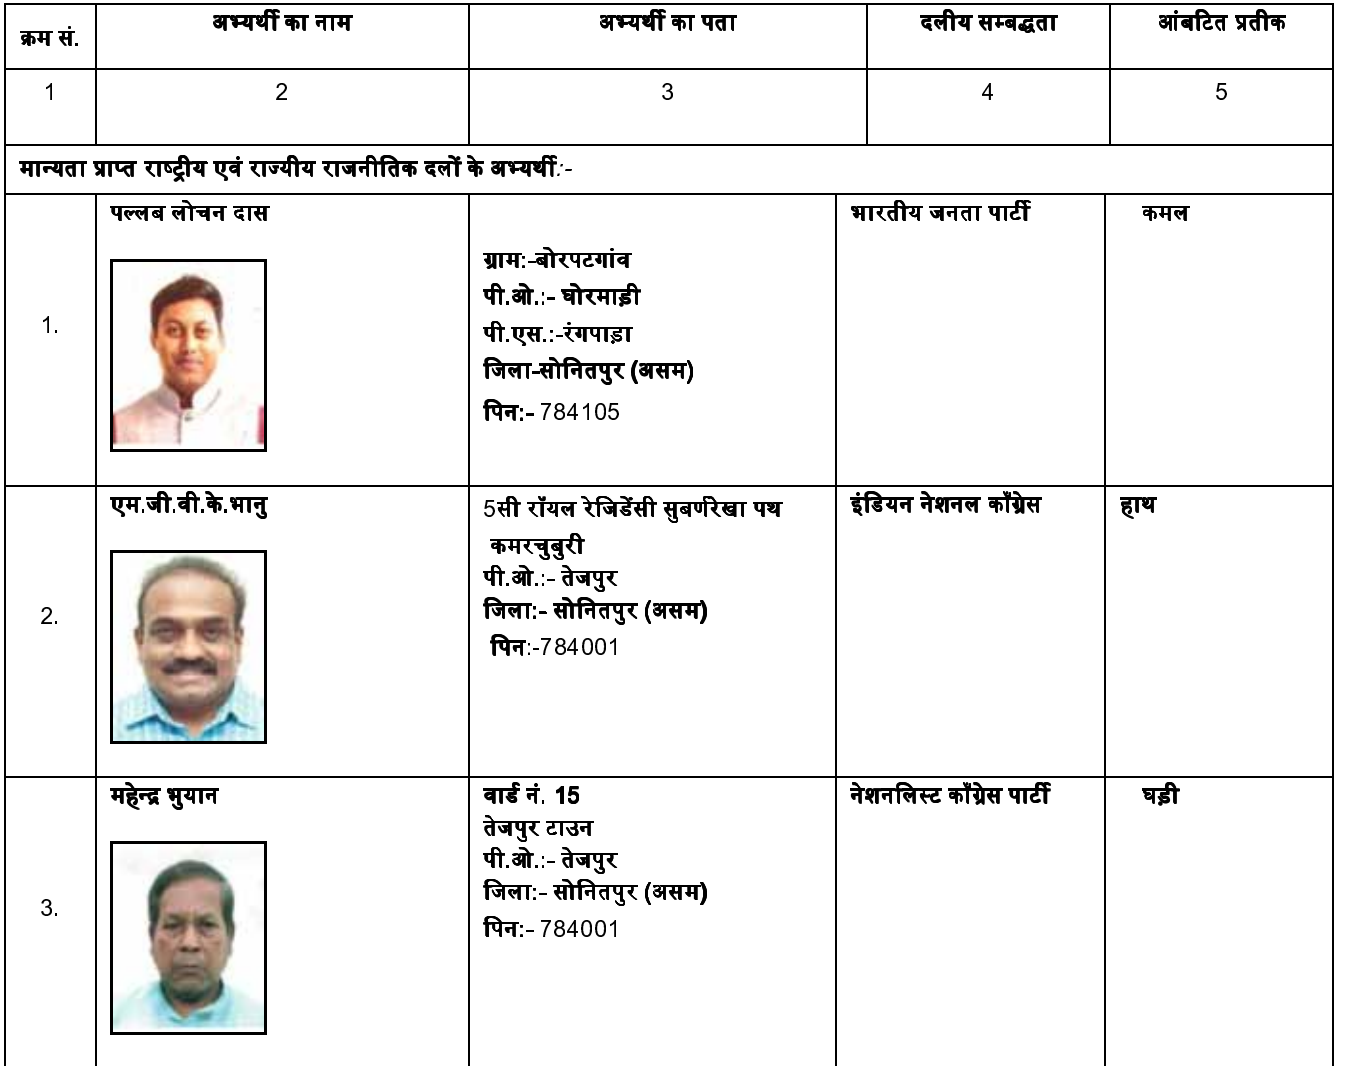 क्रम सं. अभ्यर्थी का नाम अभ्यर्थी का पता दलीय सम्बद्धता आंबटित प्रतीक
1 2 3 4 5
मान्यता प्राप्त राष्ट्रीय एवं राज्यीय राजनीतिक दलों के अभ्यर्थी:-
1.
पल्लब लोचन दास
ग्राम:-बोरपटगांव
पी.ओ.:- घोरमाड़ी
पी.एस.:-रंगपाड़ा
जिला-सोनितपुर (असम)
पिन:- 784105
भारतीय जनता पार्टी
कमल
2.
एम.जी.वी.के.भानु
5सी रॉयल रेजिडेंसी सुबर्णरेखा पथ
कमरचुबुरी
पी.ओ.:- तेजपुर
जिला:- सोनितपुर (असम)
पिन:-784001
इंडियन नेशनल काँग्रेस
हाथ
3.
महेन्द्र भुयान
वार्ड नं. 15
तेजपुर टाउन
पी.ओ.:- तेजपुर
जिला:- सोनितपुर (असम)
पिन:- 784001
नेशनलिस्ट काँग्रेस पार्टी
घड़ी